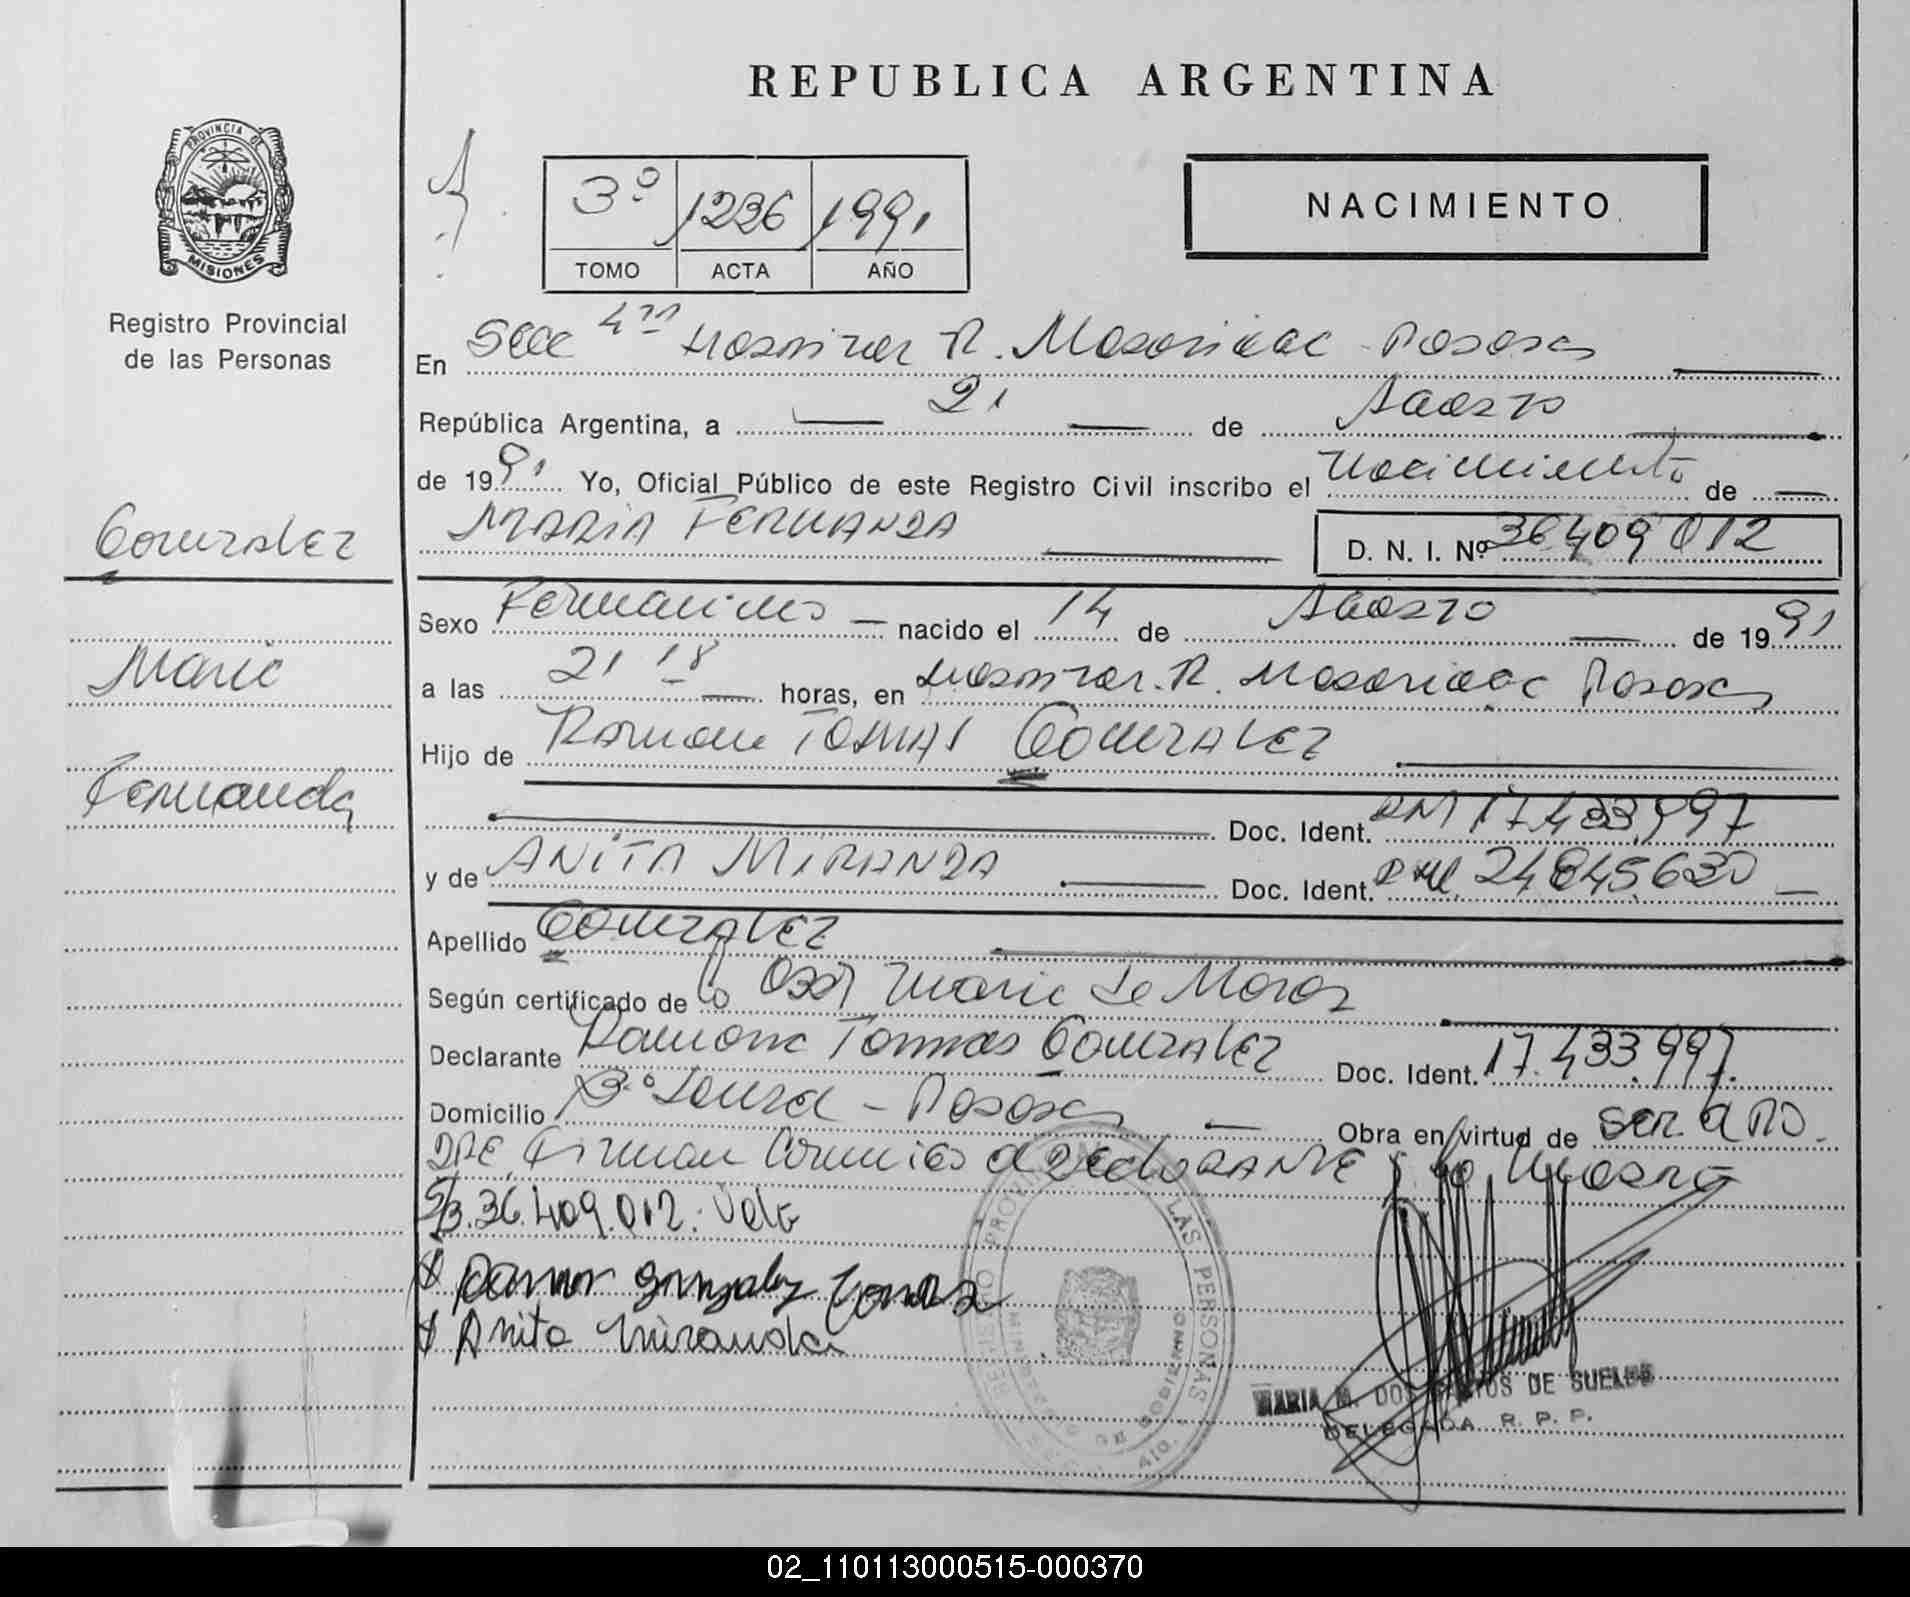 REPUBLICA ARGENTINA
PROVINCIA DE
MISIONES
Registro Provincial
de las Personas
3º 1236 1991
TOMO ACTA AÑO
NACIMIENTO
En Secc 4ta Hospital R. Madariaga - Posadas
República Argentina, a 21 de Agosto
de 1991 Yo, Oficial Público de este Registro Civil inscribo el Nacimiento de
MARIA FERNANDA D. N. I. Nº 36409012
Gonzalez
Maria
Fernanda
Sexo Femenino nacido el 14 de Agosto de 1991
a las 21 18 horas, en Hospital R. Madariaga Posadas
Hijo de Ramon Tomas Gonzalez
Doc. Ident. DNI 17.433.997
y de ANITA MIRANDA Doc. Ident. DNI 24845630
Apellido Gonzalez
Según certificado de la Obst Maria de
Declarante Ramon Tomas Gonzalez Doc. Ident. 17.433.997.
Domicilio Bº - Posadas Obra en virtud de ser el
Firman Conmigo el declarante y la
S/B. 36.409.012. Vale
Ramon Gonzalez Tomas
Anita Miranda
REGISTRO PROVINCIAL DE LAS PERSONAS
MINISTERIO DE GOBIERNO
MARIA M. DOS SANTOS DE SUELDO
DELEGADA R. P. P.
02_110113000515-000370